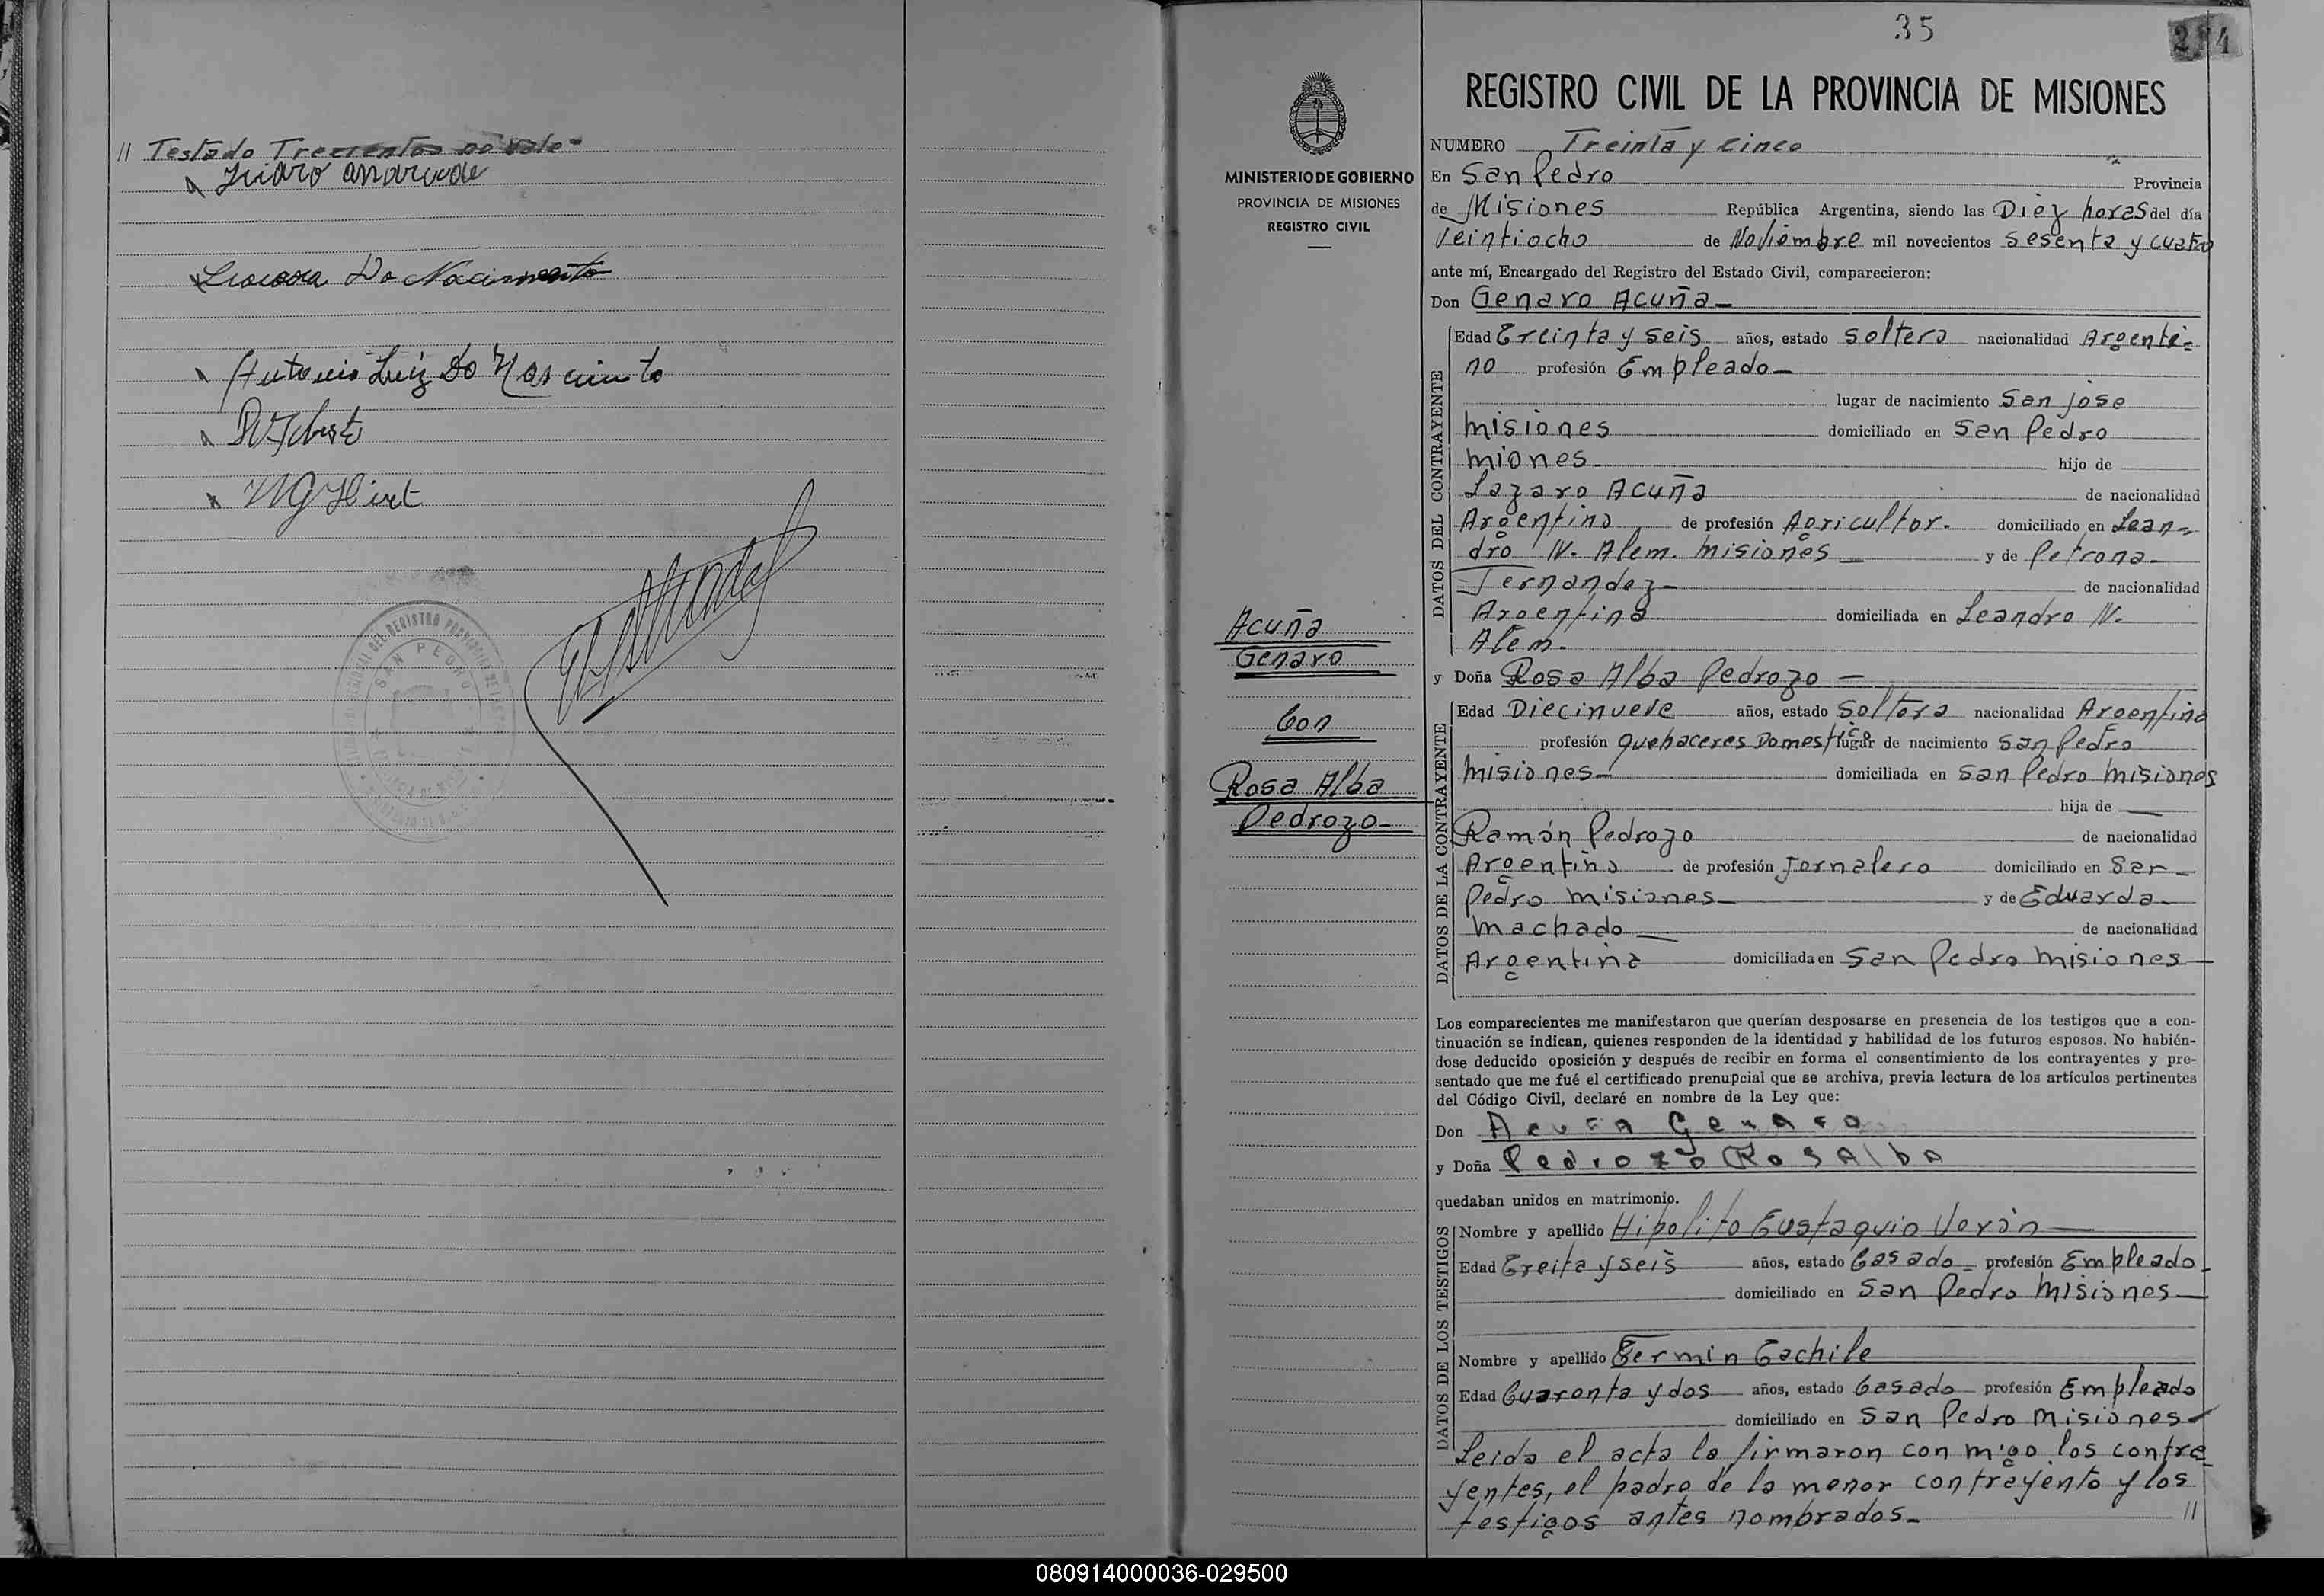 // Testado Trecientos no vale-
Do Nacimento
Antonio Luiz Do Nascimento
SAN PEDRO
35
REGISTRO CIVIL DE LA PROVINCIA DE MISIONES
MINISTERIO DE GOBIERNO
PROVINCIA DE MISIONES
REGISTRO CIVIL
Acuña
Genaro
Con
Rosa Alba
Pedrozo-
NUMERO Treinta y cinco
En San Pedro Provincia
de Misiones República Argentina, siendo las Diez horas del día
Veintiocho de Noviembre mil novecientos sesenta y cuatro
ante mí, Encargado del Registro del Estado Civil, comparecieron:
Don Genaro Acuña-
DATOS DEL CONTRAYENTE
Edad Treinta y seis años, estado soltero nacionalidad Argenti-
no profesión Empleado-
lugar de nacimiento San jose
misiones domiciliado en San Pedro
miones. hijo de
Lazaro Acuña de nacionalidad
Argentino de profesión Agricultor. domiciliado en Lean-
dro N. Alem. misiones y de Petrona-
Fernandez- de nacionalidad
Argentina domiciliada en Leandro N.
Alem.
y Doña Rosa Alba Pedrozo -
DATOS DE LA CONTRAYENTE
Edad Diecinueve años, estado Soltera nacionalidad Argentina
profesión quehaceres Domestico lugar de nacimiento San Pedro
misiones- domiciliada en San Pedro misiones
hija de
Ramón Pedrozo de nacionalidad
Argentino de profesión Jornalero domiciliado en San-
Pedro misiones- y de Eduarda-
machado- de nacionalidad
Argentina domiciliada en San Pedro misiones-
Los comparecientes me manifestaron que querían desposarse en presencia de los testigos que a con-
tinuación se indican, quienes responden de la identidad y habilidad de los futuros esposos. No habién-
dose deducido oposición y después de recibir en forma el consentimiento de los contrayentes y pre-
sentado que me fué el certificado prenupcial que se archiva, previa lectura de los artículos pertinentes
del Código Civil, declaré en nombre de la Ley que:
Don Acuña Genaro
y Doña Pedrozo RosAlbA
quedaban unidos en matrimonio.
DATOS DE LOS TESTIGOS
Nombre y apellido Hipolito Eustaquio Verón-
Edad Treita y seis años, estado Casado- profesión Empleado-
domiciliado en San Pedro misiones-
Nombre y apellido Fermin Cachile
Edad Cuarenta y dos años, estado Casado- profesión Empleado
domiciliado en San Pedro misiones-
Leida el acta la firmaron con migo los contra-
yentes, el padre de la menor contrayente y los
testigos antes nombrados- //
080914000036-029500